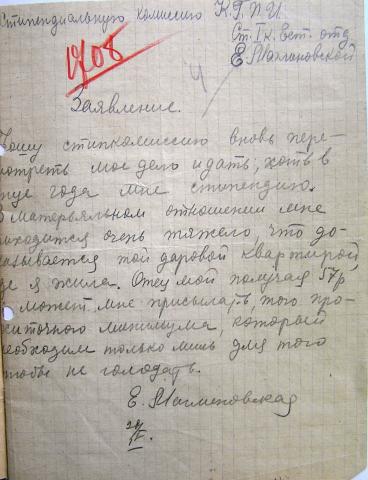 Стипендиальную комиссию К.Г.П.И.
Ст. I к. Ест. отд.
Е. Маглановской
1908
Заявление.
рошу стипкомиссию вновь пере-
мотреть мое дело и дать, хотя в
нце года мне стипендию.
В матерьяльном отношении мне
риходится очень тяжело, что до-
казывается той даровой квартирой
де я жила. Отец мой получая 57 р.
может мне присылать, того про-
житочного минимума, который
необходим только лишь для того
чтобы не голодать.
Е. Маглановская